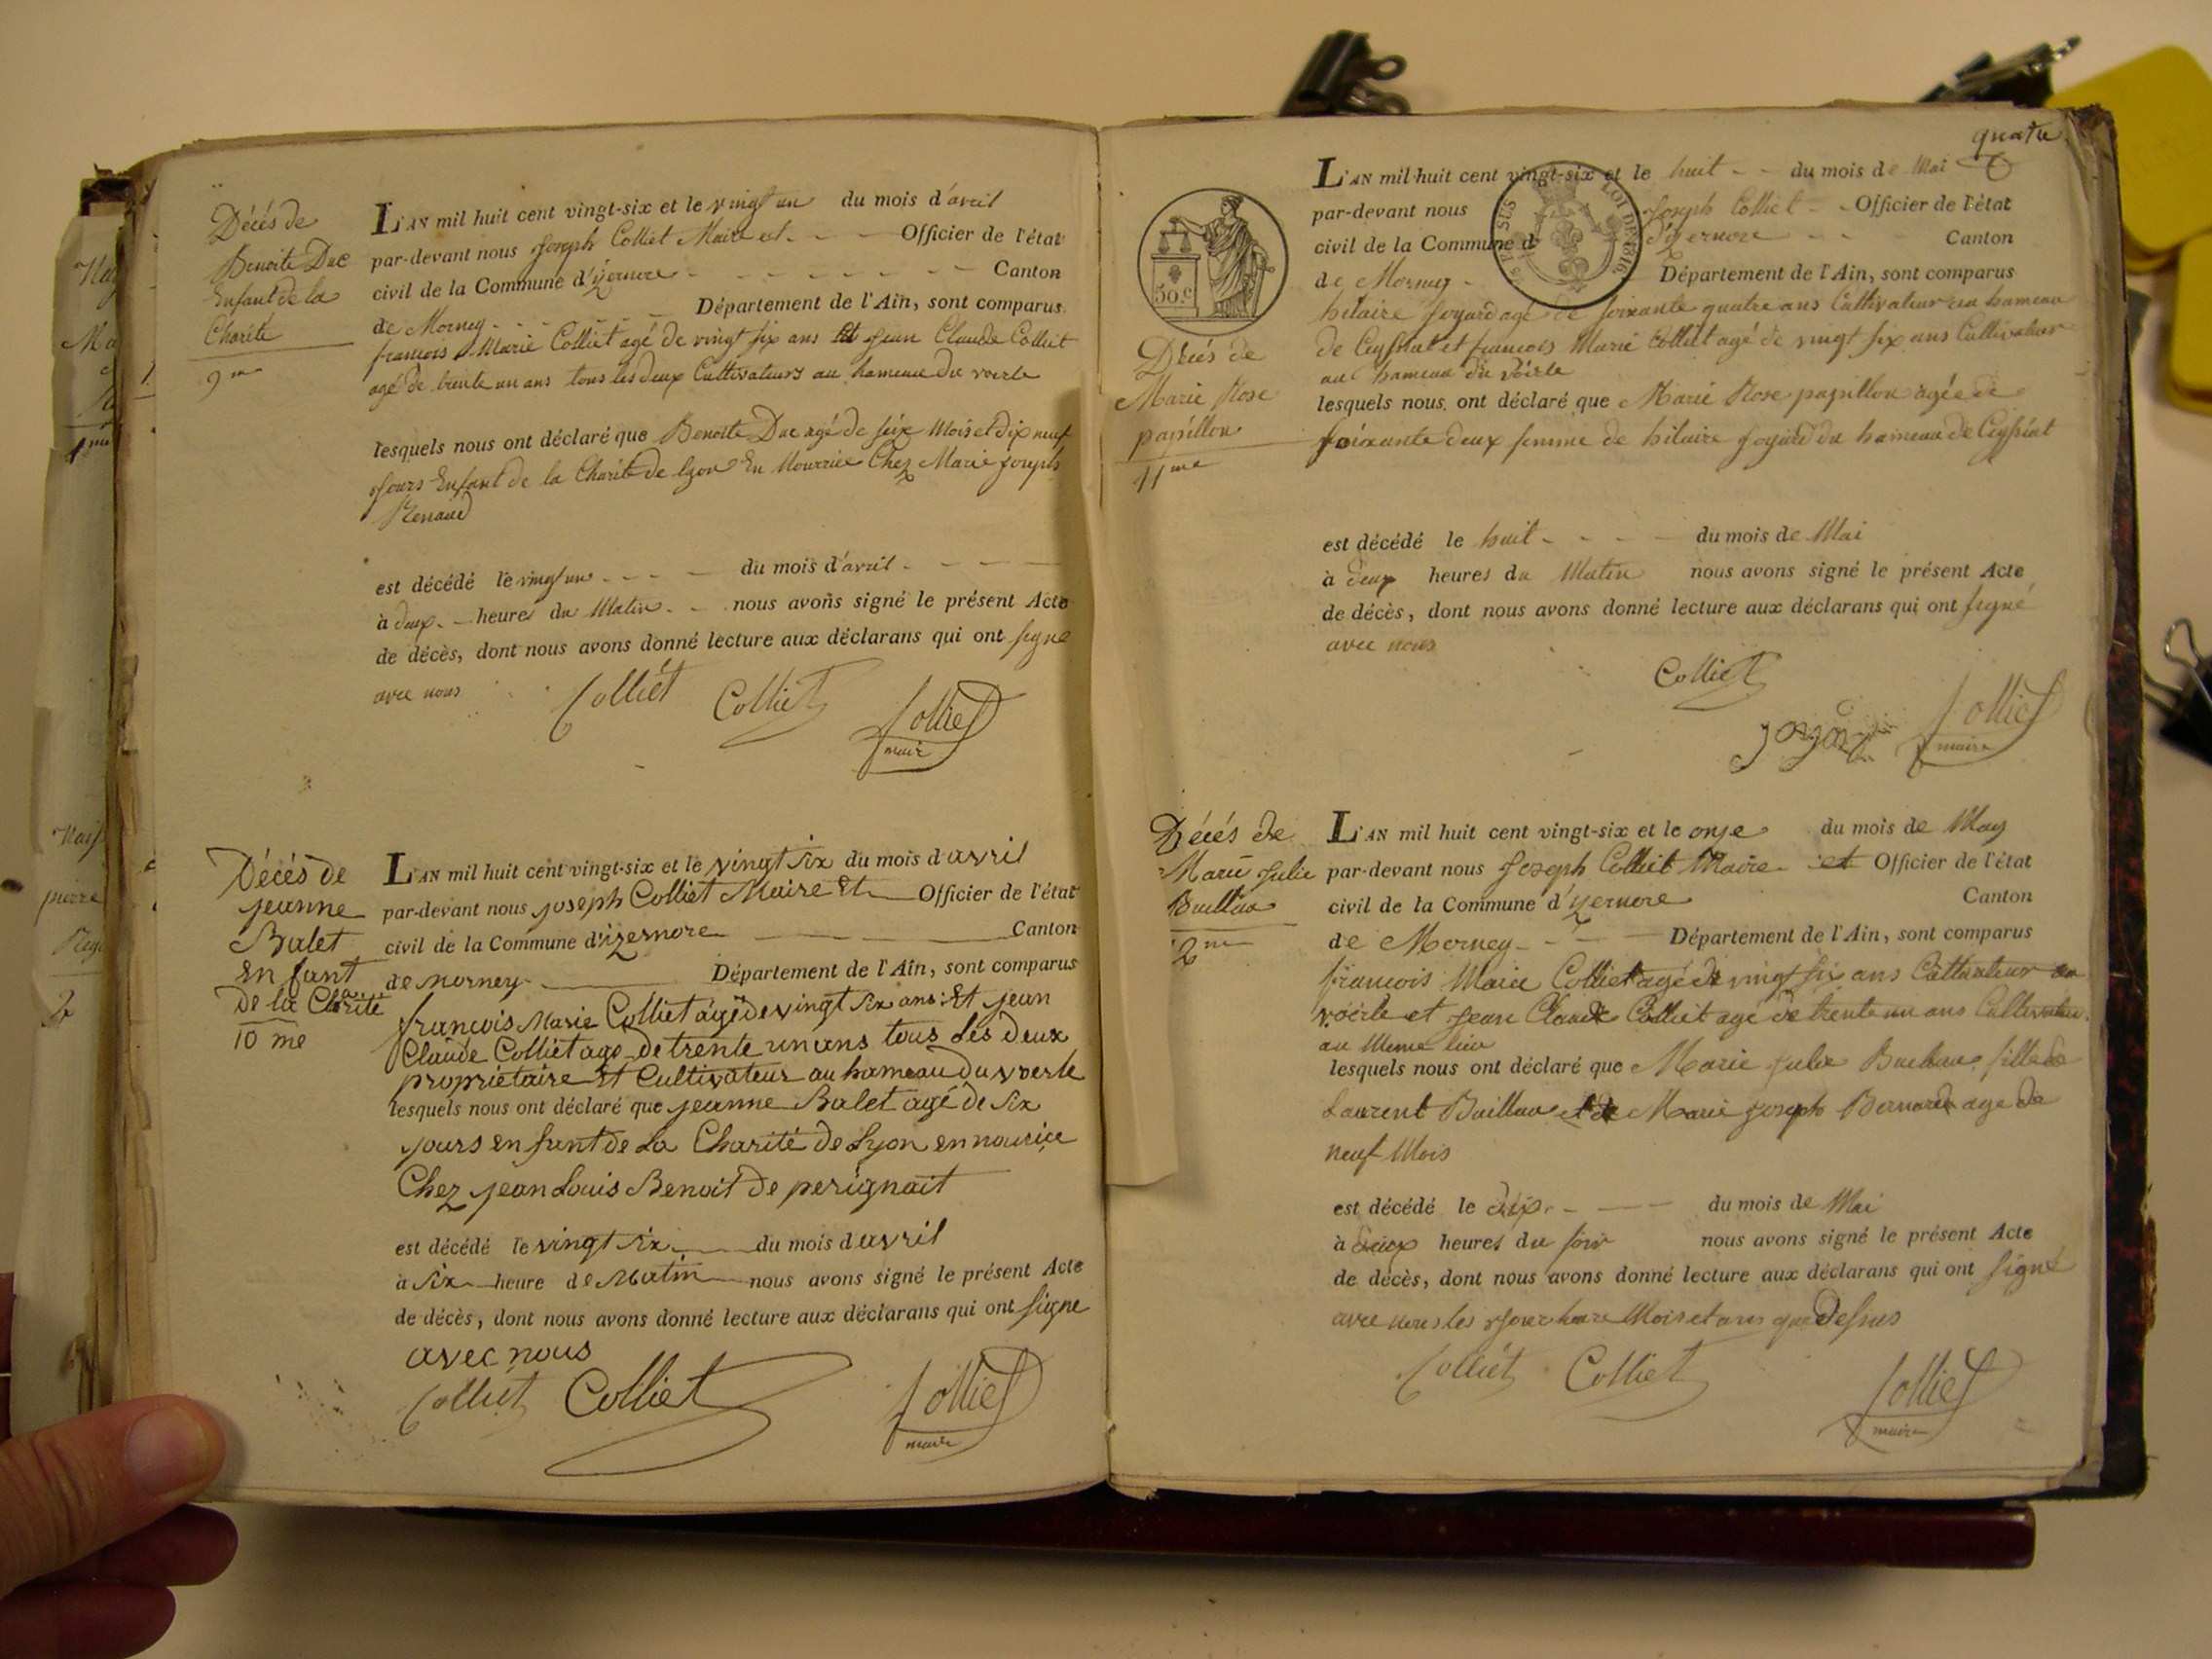 Décés de
Benoite Duc
Enfant de la
Charité
9me
L'AN mil huit cent vingt-six et le vingt un du mois d'avril
par-devant nous Joseph Colliet Maire et Officier de l'état
civil de la Commune d'yzernore Canton
de Mornay Département de l'Ain, sont comparus
francois Marie Colliet agé de vingt six ans et Jean Claude Colliet
agé de trente un ans tous les deux Cultivateurs au hameau du voerle
lesquels nous ont déclaré que Benoite Duc agé de six Mois et dix neuf
Jours Enfant de la Charité de lyon En Nourrice Chez Marie Joseph
Renaud
est décédé le vingt un du mois d'avril
à deux heures du Matin nous avons signé le présent Acte
de décès, dont nous avons donné lecture aux déclarans qui ont signé
avec nous
Colliet Colliet Colliet
maire
Décés de
jeanne
Balet
enfant
De la Charité
10 me
L'AN mil huit cent vingt-six et le vingt six du mois d'avril
par-devant nous joseph Colliet Maire Et Officier de l'état
civil de la Commune d'izernore Canton
de norney Département de l'Ain, sont comparus
francois Marie Colliet agé de vingt six ans Et jean
Claude Colliet age de trente un ans tous les deux
propriétaire Et Cultivateur au hameau du voerle
lesquels nous ont déclaré que jeanne Balet agé de six
jours enfant de La Charité de Lyon en nourice
Chez jean Louis Benoit de perignait
est décédé le vingt six du mois d'avril
à six heure de Matin nous avons signé le présent Acte
de décès, dont nous avons donné lecture aux déclarans qui ont signe
avec nous
Colliet Colliet Colliet
maire
quatre
50.c
LOI DE 1816
Décés de
Marie Rose
papillon
11me
L'AN mil huit cent vingt-six et le huit du mois de Mai
par-devant nous Joseph Colliet Officier de l'état
civil de la Commune d'yzernore Canton
de Mornay Département de l'Ain, sont comparus
hilaire foyard agé de soixante quatre ans Cultivateur au hameau
de Ceyssiat et francois Marie Colliet agé de vingt six ans Cultivateur
au hameau du voerle
lesquels nous ont déclaré que Marie Rose papillon agée de
soixante deux femme de hilaire foyard du hameau de Ceyssiat
est décédé le huit du mois de Mai
à deux heures du Matin nous avons signé le présent Acte
de décès, dont nous avons donné lecture aux déclarans qui ont signé
avec nous
Colliet
Colliet
maire
Décés de
Marie Julie
L'AN mil huit cent vingt-six et le onze du mois de May
par-devant nous Joseph Colliet Maire et Officier de l'état
civil de la Commune d'yzernore Canton
de Mornay Département de l'Ain, sont comparus
francois Marie Colliet agé de vingt six ans Cultivateur au
voerle et Jean Claude Colliet agé de trente un ans Cultivateur
au Meme lieu
lesquels nous ont déclaré que Marie Julie fille de
Laurent et de Marie Joseph Bernard age de
neuf Mois
est décédé le dix du mois de Mai
à deux heures du soir nous avons signé le présent Acte
de décès, dont nous avons donné lecture aux déclarans qui ont signé
avec nous les Jour heure Mois et ans que Dessus
Colliet Colliet
Colliet
maire